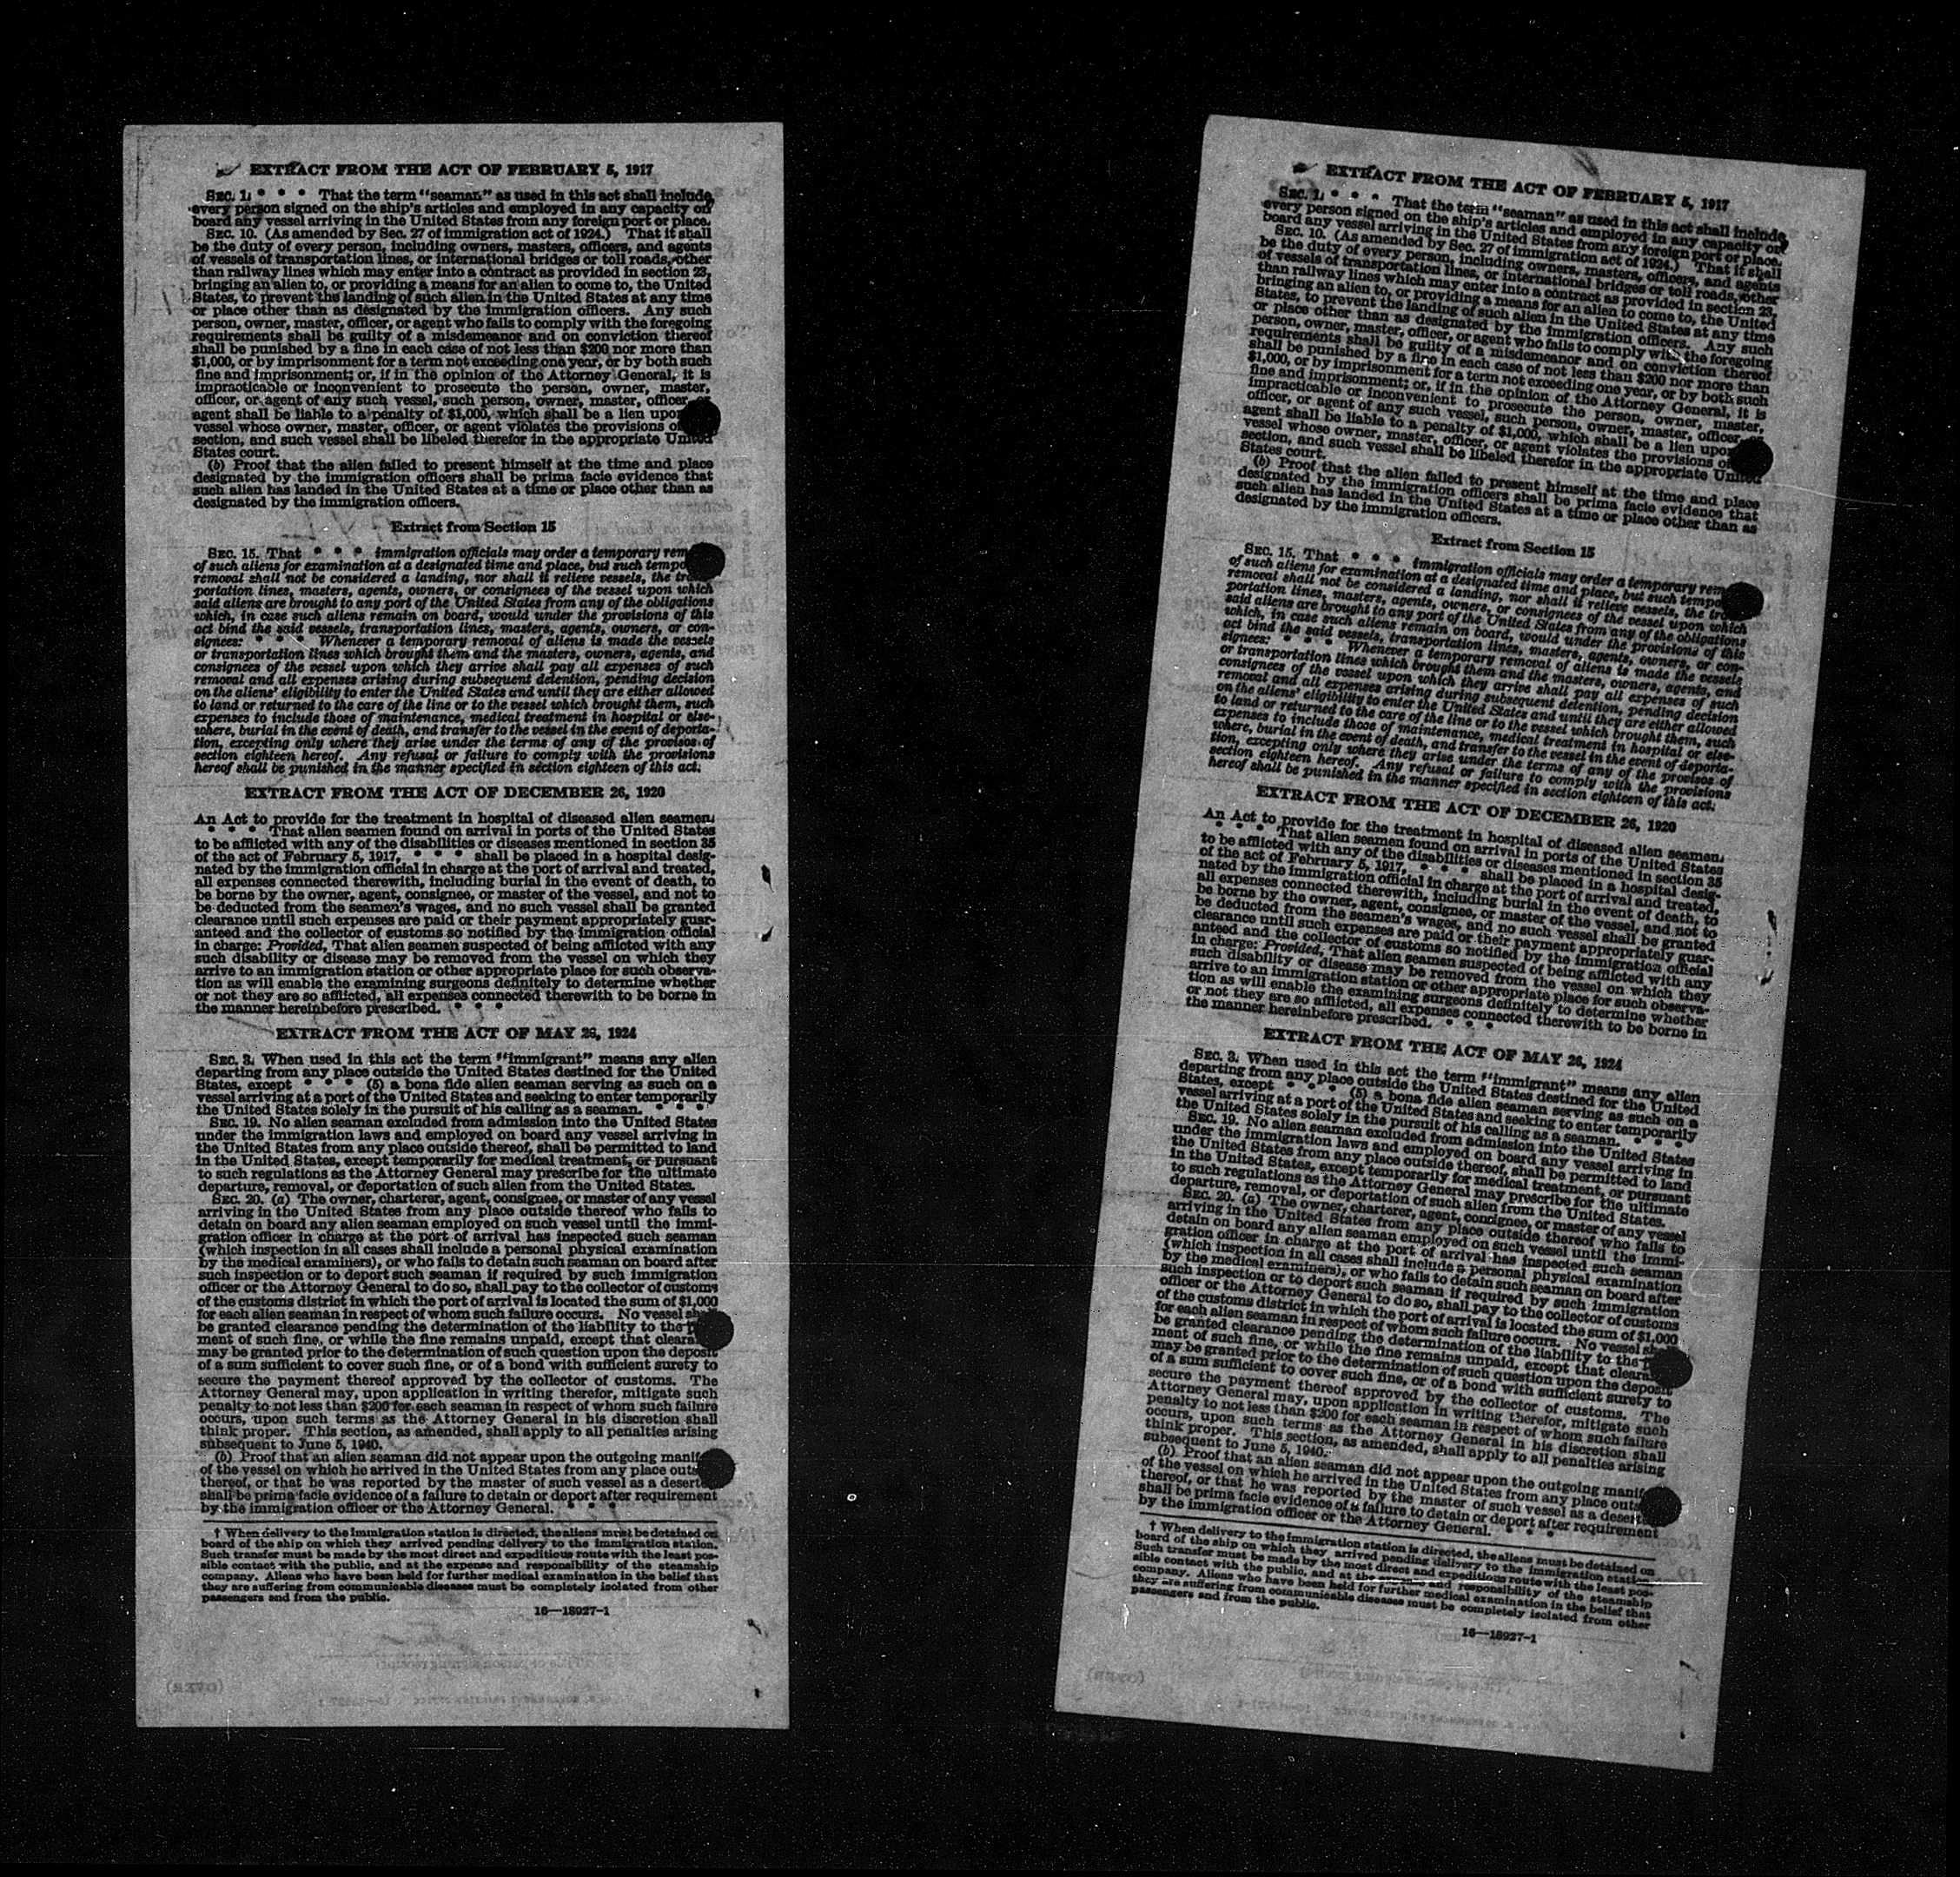 EXTRACT FROM THE ACT OF FEBRUARY 5, 1917
SEC. 1. * * * That the term "seaman" as used in this act shall include
every person signed on the ship's articles and employed in any capacity on
board any vessel arriving in the United States from any foreign port or place.
SEC. 10. (As amended by Sec. 27 of immigration act of 1924.) That it shall
be the duty of every person, including owners, masters, officers, and agents
of vessels of transportation lines, or international bridges or toll roads, other
than railway lines which may enter into a contract as provided in section 23,
bringing an alien to, or providing a means for an alien to come to, the United
States, to prevent the landing of such alien in the United States at any time
or place other than as designated by the immigration officers. Any such
person, owner, master, officer, or agent who fails to comply with the foregoing
requirements shall be guilty of a misdemeanor and on conviction thereof
shall be punished by a fine in each case of not less than $200 nor more than
$1,000, or by imprisonment for a term not exceeding one year, or by both such
fine and imprisonment; or, if in the opinion of the Attorney General, it is
impracticable or inconvenient to prosecute the person, owner, master,
officer, or agent of any such vessel, such person, owner, master, officer, or
agent shall be liable to a penalty of $1,000, which shall be a lien upon
vessel whose owner, master, officer, or agent violates the provisions of
section, and such vessel shall be libeled therefor in the appropriate United
States court.
(b) Proof that the alien failed to present himself at the time and place
designated by the immigration officers shall be prima facie evidence that
such alien has landed in the United States at a time or place other than as
designated by the immigration officers.
Extract from Section 15
SEC. 15. That * * * immigration officials may order a temporary rem
of such aliens for examination at a designated time and place, but such tempo
removal shall not be considered a landing, nor shall it relieve vessels, the trans
portation lines, masters, agents, owners, or consignees of the vessel upon which
said aliens are brought to any port of the United States from any of the obligations
which, in case such aliens remain on board, would under the provisions of this
act bind the said vessels, transportation lines, masters, agents, owners, or con-
signees: * * * Whenever a temporary removal of aliens is made the vessels
or transportation lines which brought them and the masters, owners, agents, and
consignees of the vessel upon which they arrive shall pay all expenses of such
removal and all expenses arising during subsequent detention, pending decision
on the aliens' eligibility to enter the United States and until they are either allowed
to land or returned to the care of the line or to the vessel which brought them, such
expenses to include those of maintenance, medical treatment in hospital or else-
where, burial in the event of death, and transfer to the vessel in the event of deporta-
tion, excepting only where they arise under the terms of any of the provisos of
section eighteen hereof. Any refusal or failure to comply with the provisions
hereof shall be punished in the manner specified in section eighteen of this act.
EXTRACT FROM THE ACT OF DECEMBER 26, 1920
An Act to provide for the treatment in hospital of diseased alien seamen.
* * * That alien seamen found on arrival in ports of the United States
to be afflicted with any of the disabilities or diseases mentioned in section 35
of the act of February 5, 1917, * * * shall be placed in a hospital desig-
nated by the immigration official in charge at the port of arrival and treated,
all expenses connected therewith, including burial in the event of death, to
be borne by the owner, agent, consignee, or master of the vessel, and not to
be deducted from the seamen's wages, and no such vessel shall be granted
clearance until such expenses are paid or their payment appropriately guar-
anteed and the collector of customs so notified by the immigration official
in charge: Provided, That alien seamen suspected of being afflicted with any
such disability or disease may be removed from the vessel on which they
arrive to an immigration station or other appropriate place for such observa-
tion as will enable the examining surgeons definitely to determine whether
or not they are so afflicted, all expenses connected therewith to be borne in
the manner hereinbefore prescribed. * * *
EXTRACT FROM THE ACT OF MAY 26, 1924
SEC. 3. When used in this act the term "immigrant" means any alien
departing from any place outside the United States destined for the United
States, except * * * (5) a bona fide alien seaman serving as such on a
vessel arriving at a port of the United States and seeking to enter temporarily
the United States solely in the pursuit of his calling as a seaman. * * *
SEC. 19. No alien seaman excluded from admission into the United States
under the immigration laws and employed on board any vessel arriving in
the United States from any place outside thereof, shall be permitted to land
in the United States, except temporarily for medical treatment, or pursuant
to such regulations as the Attorney General may prescribe for the ultimate
departure, removal, or deportation of such alien from the United States.
SEC. 20. (a) The owner, charterer, agent, consignee, or master of any vessel
arriving in the United States from any place outside thereof who fails to
detain on board any alien seaman employed on such vessel until the immi-
gration officer in charge at the port of arrival has inspected such seaman
(which inspection in all cases shall include a personal physical examination
by the medical examiners), or who fails to detain such seaman on board after
such inspection or to deport such seaman if required by such immigration
officer or the Attorney General to do so, shall pay to the collector of customs
of the customs district in which the port of arrival is located the sum of $1,000
for each alien seaman in respect of whom such failure occurs. No vessel shall
be granted clearance pending the determination of the liability to the p
ment of such fine, or while the fine remains unpaid, except that cleara
may be granted prior to the determination of such question upon the deposit
of a sum sufficient to cover such fine, or of a bond with sufficient surety to
secure the payment thereof approved by the collector of customs. The
Attorney General may, upon application in writing therefor, mitigate such
penalty to not less than $200 for each seaman in respect of whom such failure
occurs, upon such terms as the Attorney General in his discretion shall
think proper. This section, as amended, shall apply to all penalties arising
subsequent to June 5, 1940.
(b) Proof that an alien seaman did not appear upon the outgoing manif
of the vessel on which he arrived in the United States from any place outs
thereof, or that he was reported by the master of such vessel as a deserte
shall be prima facie evidence of a failure to detain or deport after requirement
by the immigration officer or the Attorney General. * * *
† When delivery to the immigration station is directed, the aliens must be detained on
board of the ship on which they arrived pending delivery to the immigration station.
Such transfer must be made by the most direct and expeditious route with the least pos-
sible contact with the public, and at the expense and responsibility of the steamship
company. Aliens who have been held for further medical examination in the belief that
they are suffering from communicable diseases must be completely isolated from other
passengers and from the public.
16—18927-1
EXTRACT FROM THE ACT OF FEBRUARY 5, 1917
SEC. 1. * * * That the term "seaman" as used in this act shall include
every person signed on the ship's articles and employed in any capacity on
board any vessel arriving in the United States from any foreign port or place.
SEC. 10. (As amended by Sec. 27 of immigration act of 1924.) That it shall
be the duty of every person, including owners, masters, officers, and agents
of vessels of transportation lines, or international bridges or toll roads, other
than railway lines which may enter into a contract as provided in section 23,
bringing an alien to, or providing a means for an alien to come to, the United
States, to prevent the landing of such alien in the United States at any time
or place other than as designated by the immigration officers. Any such
person, owner, master, officer, or agent who fails to comply with the foregoing
requirements shall be guilty of a misdemeanor and on conviction thereof
shall be punished by a fine in each case of not less than $200 nor more than
$1,000, or by imprisonment for a term not exceeding one year, or by both such
fine and imprisonment; or, if in the opinion of the Attorney General, it is
impracticable or inconvenient to prosecute the person, owner, master,
officer, or agent of any such vessel, such person, owner, master, officer, or
agent shall be liable to a penalty of $1,000, which shall be a lien upon
vessel whose owner, master, officer, or agent violates the provisions of
section, and such vessel shall be libeled therefor in the appropriate United
States court.
(b) Proof that the alien failed to present himself at the time and place
designated by the immigration officers shall be prima facie evidence that
such alien has landed in the United States at a time or place other than as
designated by the immigration officers.
Extract from Section 15
SEC. 15. That * * * immigration officials may order a temporary rem
of such aliens for examination at a designated time and place, but such tempo
removal shall not be considered a landing, nor shall it relieve vessels, the trans
portation lines, masters, agents, owners, or consignees of the vessel upon which
said aliens are brought to any port of the United States from any of the obligations
which, in case such aliens remain on board, would under the provisions of this
act bind the said vessels, transportation lines, masters, agents, owners, or con-
signees: * * * Whenever a temporary removal of aliens is made the vessels
or transportation lines which brought them and the masters, owners, agents, and
consignees of the vessel upon which they arrive shall pay all expenses of such
removal and all expenses arising during subsequent detention, pending decision
on the aliens' eligibility to enter the United States and until they are either allowed
to land or returned to the care of the line or to the vessel which brought them, such
expenses to include those of maintenance, medical treatment in hospital or else-
where, burial in the event of death, and transfer to the vessel in the event of deporta-
tion, excepting only where they arise under the terms of any of the provisos of
section eighteen hereof. Any refusal or failure to comply with the provisions
hereof shall be punished in the manner specified in section eighteen of this act.
EXTRACT FROM THE ACT OF DECEMBER 26, 1920
An Act to provide for the treatment in hospital of diseased alien seamen.
* * * That alien seamen found on arrival in ports of the United States
to be afflicted with any of the disabilities or diseases mentioned in section 35
of the act of February 5, 1917, * * * shall be placed in a hospital desig-
nated by the immigration official in charge at the port of arrival and treated,
all expenses connected therewith, including burial in the event of death, to
be borne by the owner, agent, consignee, or master of the vessel, and not to
be deducted from the seamen's wages, and no such vessel shall be granted
clearance until such expenses are paid or their payment appropriately guar-
anteed and the collector of customs so notified by the immigration official
in charge: Provided, That alien seamen suspected of being afflicted with any
such disability or disease may be removed from the vessel on which they
arrive to an immigration station or other appropriate place for such observa-
tion as will enable the examining surgeons definitely to determine whether
or not they are so afflicted, all expenses connected therewith to be borne in
the manner hereinbefore prescribed. * * *
EXTRACT FROM THE ACT OF MAY 26, 1924
SEC. 3. When used in this act the term "immigrant" means any alien
departing from any place outside the United States destined for the United
States, except * * * (5) a bona fide alien seaman serving as such on a
vessel arriving at a port of the United States and seeking to enter temporarily
the United States solely in the pursuit of his calling as a seaman. * * *
SEC. 19. No alien seaman excluded from admission into the United States
under the immigration laws and employed on board any vessel arriving in
the United States from any place outside thereof, shall be permitted to land
in the United States, except temporarily for medical treatment, or pursuant
to such regulations as the Attorney General may prescribe for the ultimate
departure, removal, or deportation of such alien from the United States.
SEC. 20. (a) The owner, charterer, agent, consignee, or master of any vessel
arriving in the United States from any place outside thereof who fails to
detain on board any alien seaman employed on such vessel until the immi-
gration officer in charge at the port of arrival has inspected such seaman
(which inspection in all cases shall include a personal physical examination
by the medical examiners), or who fails to detain such seaman on board after
such inspection or to deport such seaman if required by such immigration
officer or the Attorney General to do so, shall pay to the collector of customs
of the customs district in which the port of arrival is located the sum of $1,000
for each alien seaman in respect of whom such failure occurs. No vessel shall
be granted clearance pending the determination of the liability to the p
ment of such fine, or while the fine remains unpaid, except that cleara
may be granted prior to the determination of such question upon the deposit
of a sum sufficient to cover such fine, or of a bond with sufficient surety to
secure the payment thereof approved by the collector of customs. The
Attorney General may, upon application in writing therefor, mitigate such
penalty to not less than $200 for each seaman in respect of whom such failure
occurs, upon such terms as the Attorney General in his discretion shall
think proper. This section, as amended, shall apply to all penalties arising
subsequent to June 5, 1940.
(b) Proof that an alien seaman did not appear upon the outgoing manif
of the vessel on which he arrived in the United States from any place outs
thereof, or that he was reported by the master of such vessel as a deserte
shall be prima facie evidence of a failure to detain or deport after requirement
by the immigration officer or the Attorney General. * * *
† When delivery to the immigration station is directed, the aliens must be detained on
board of the ship on which they arrived pending delivery to the immigration station.
Such transfer must be made by the most direct and expeditious route with the least pos-
sible contact with the public, and at the expense and responsibility of the steamship
company. Aliens who have been held for further medical examination in the belief that
they are suffering from communicable diseases must be completely isolated from other
passengers and from the public.
16—18927-1